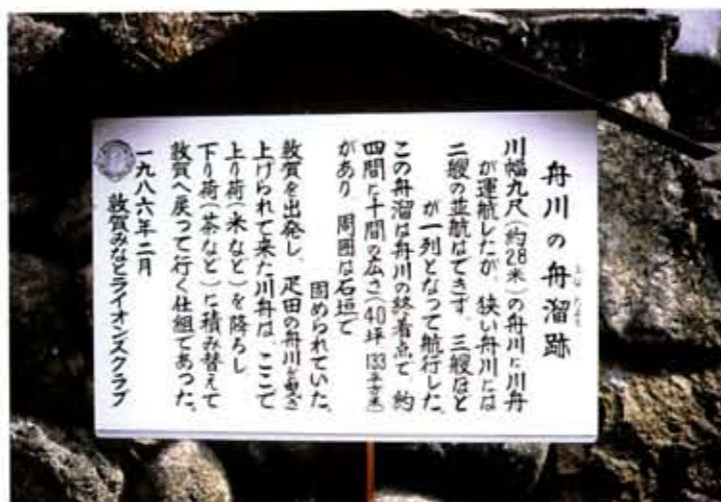 舟川の舟溜跡
川幅九尺(約2.8米)の舟川に川舟
が運航したが、狭い舟川には
二艘の並航はできず、三艘ほど
が一列となって航行した。
この舟溜は舟川の終着点で、約
四間に十間の広さ(40坪 133平方米)
があり、周囲は石垣で
固められていた。
敦賀を出発し、疋田の舟川を
上げられて来た川舟は、ここで
上り荷(米など)を降ろし
下り荷(茶など)に積み替えて
敦賀へ戻って行く仕組であった。
一九八六年二月
敦賀みなとライオンズクラブ